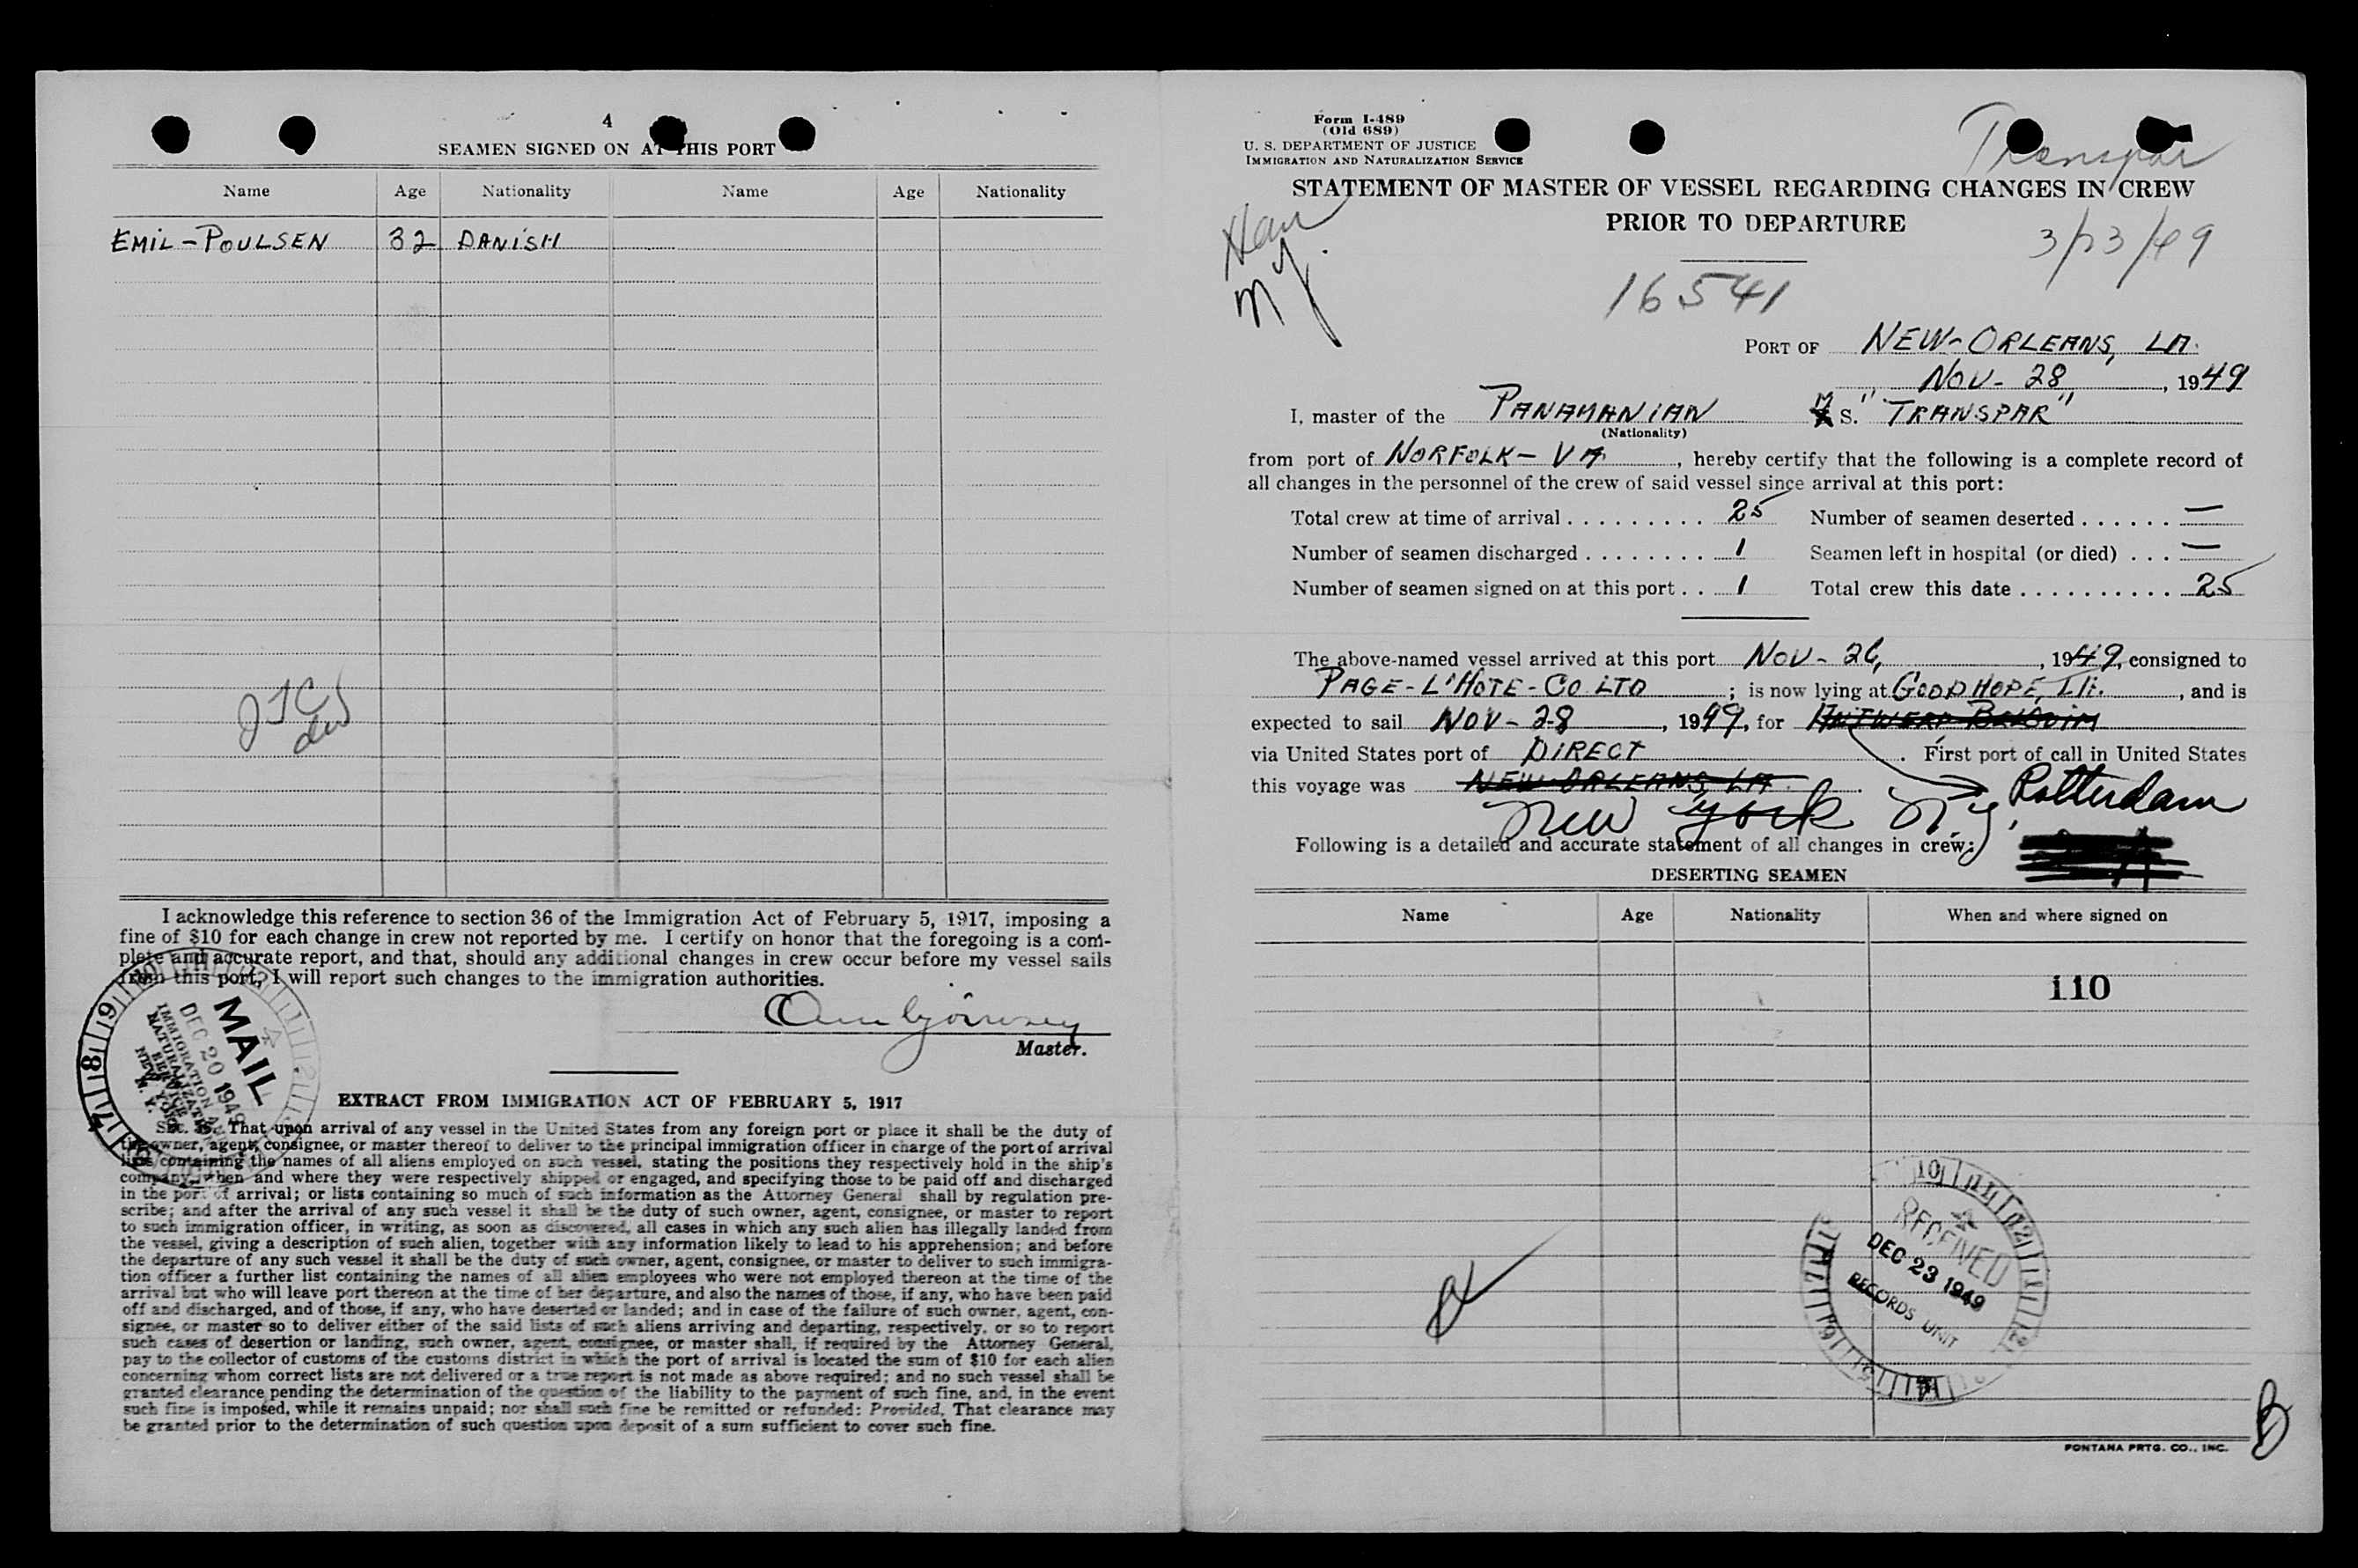 4
SEAMEN SIGNED ON AT THIS PORT
Name Age Nationality Name Age Nationality
EMIL - POULSEN 32 DANISH
I acknowledge this reference to section 36 of the Immigration Act of February 5, 1917, imposing a
fine of $10 for each change in crew not reported by me. I certify on honor that the foregoing is a com-
plete and accurate report, and that, should any additional changes in crew occur before my vessel sails
from this port, I will report such changes to the immigration authorities.
Master.
MAIL
DEC 20 1949
IMMIGRATION AND
NATURALIZATION
SERVICE
NEW YORK
N. Y.
EXTRACT FROM IMMIGRATION ACT OF FEBRUARY 5, 1917
SEC. 36. That upon arrival of any vessel in the United States from any foreign port or place it shall be the duty of
the owner, agent, consignee, or master thereof to deliver to the principal immigration officer in charge of the port of arrival
lists containing the names of all aliens employed on such vessel, stating the positions they respectively hold in the ship's
company, when and where they were respectively shipped or engaged, and specifying those to be paid off and discharged
in the port of arrival; or lists containing so much of such information as the Attorney General shall by regulation pre-
scribe; and after the arrival of any such vessel it shall be the duty of such owner, agent, consignee, or master to report
to such immigration officer, in writing, as soon as discovered, all cases in which any such alien has illegally landed from
the vessel, giving a description of such alien, together with any information likely to lead to his apprehension; and before
the departure of any such vessel it shall be the duty of such owner, agent, consignee, or master to deliver to such immigra-
tion officer a further list containing the names of all alien employees who were not employed thereon at the time of the
arrival but who will leave port thereon at the time of her departure, and also the names of those, if any, who have been paid
off and discharged, and of those, if any, who have deserted or landed; and in case of the failure of such owner, agent, con-
signee, or master so to deliver either of the said lists of such aliens arriving and departing, respectively, or so to report
such cases of desertion or landing, such owner, agent, consignee, or master shall, if required by the Attorney General,
pay to the collector of customs of the customs district in which the port of arrival is located the sum of $10 for each alien
concerning whom correct lists are not delivered or a true report is not made as above required; and no such vessel shall be
granted clearance pending the determination of the question of the liability to the payment of such fine, and, in the event
such fine is imposed, while it remains unpaid; nor shall such fine be remitted or refunded: Provided, That clearance may
be granted prior to the determination of such question upon deposit of a sum sufficient to cover such fine.
Form I-489
(Old 689)
U. S. DEPARTMENT OF JUSTICE
IMMIGRATION AND NATURALIZATION SERVICE
Transpar
STATEMENT OF MASTER OF VESSEL REGARDING CHANGES IN CREW
PRIOR TO DEPARTURE
3/23/49
16541
PORT OF NEW-ORLEANS, LA.
NOV - 28, 1949
I, master of the PANAMANIAN M S. "TRANSPAR"
(Nationality)
from port of NORFOLK - VA., hereby certify that the following is a complete record of
all changes in the personnel of the crew of said vessel since arrival at this port:
Total crew at time of arrival . . . . . . . . . 25 Number of seamen deserted . . . . . . —
Number of seamen discharged . . . . . . . . 1 Seamen left in hospital (or died) . . . —
Number of seamen signed on at this port . . 1 Total crew this date . . . . . . . . . . 25
The above-named vessel arrived at this port NOV - 26, 1949, consigned to
PAGE - L'HOTE - CO LTD ; is now lying at GOOD HOPE, , and is
expected to sail NOV - 28, 1949, for ANTWERP BELGIUM
via United States port of DIRECT. First port of call in United States
this voyage was NEW ORLEANS, LA.
New York N.Y. Rotterdam
Following is a detailed and accurate statement of all changes in crew:
DESERTING SEAMEN
Name Age Nationality When and where signed on
110
RECEIVED
DEC 23 1949
RECORDS UNIT
FONTANA PRTG. CO., INC.